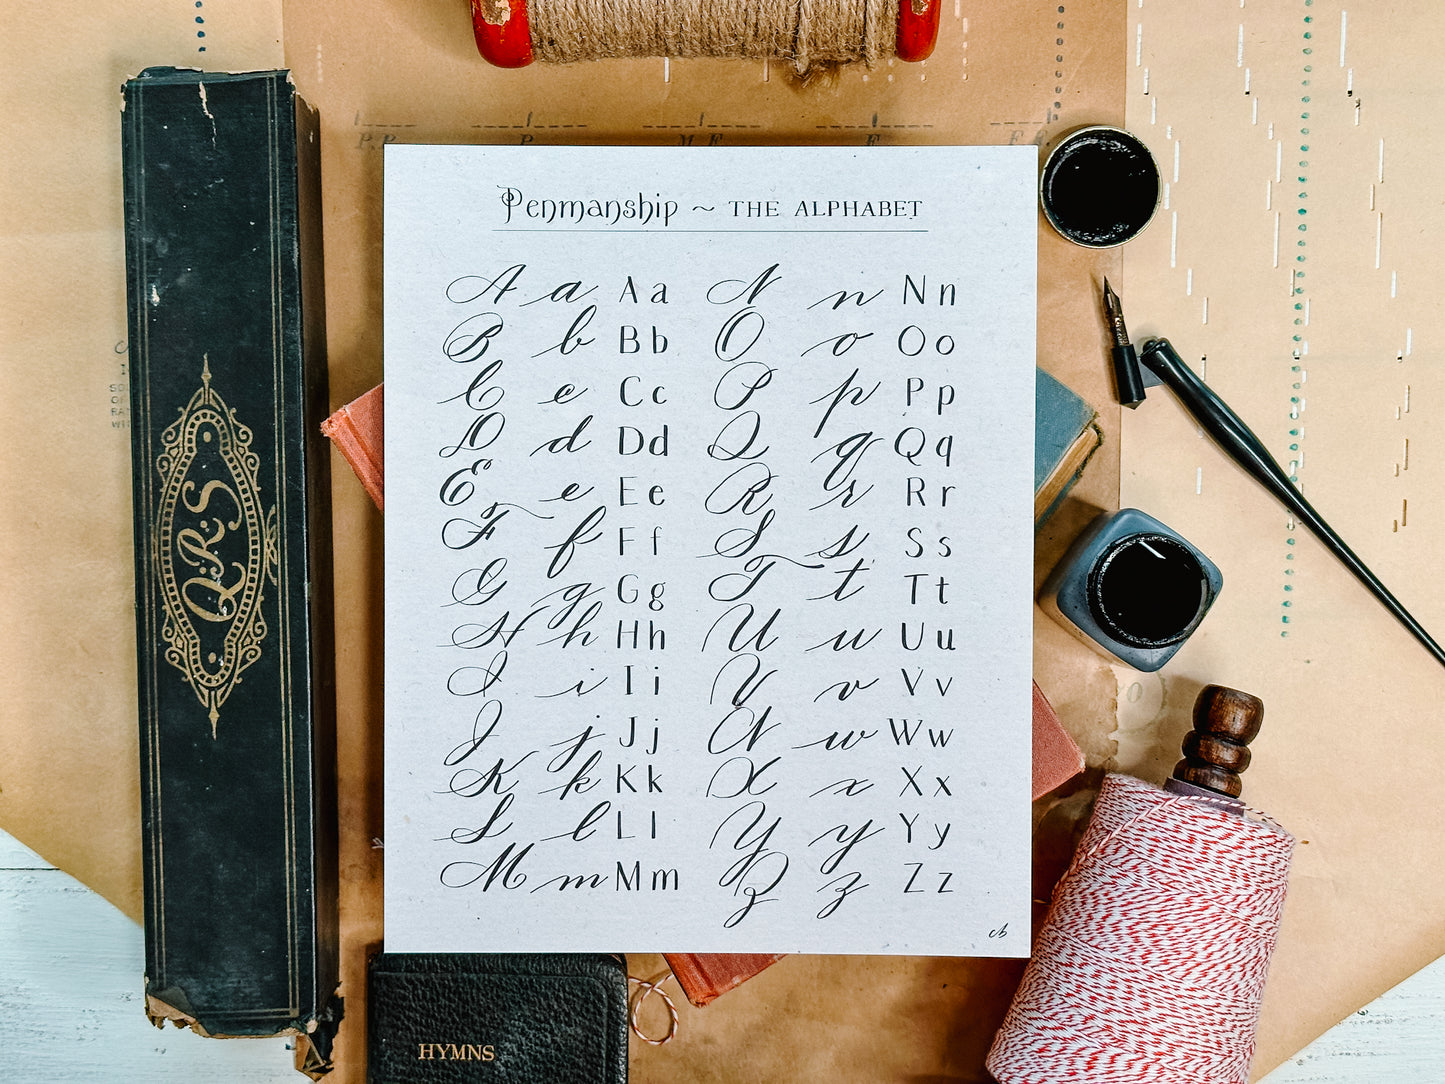 P.P. P. M.F. F. F.F.
Penmanship ~ THE ALPHABET
A a Aa N n Nn
B b Bb O o Oo
C c Cc P p Pp
D d Dd Q q Qq
E e Ee R r Rr
F f Ff S s Ss
G g Gg T t Tt
H h Hh U u Uu
I i Ii V v Vv
J j Jj W w Ww
K k Kk X x Xx
L l Ll Y y Yy
M m Mm Z z Zz
cb
Q.R.S
HYMNS